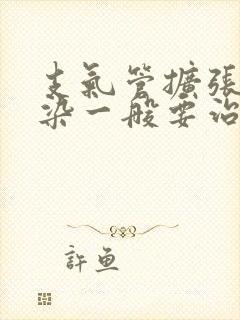 支氣管擴張
染一般要治
許魚